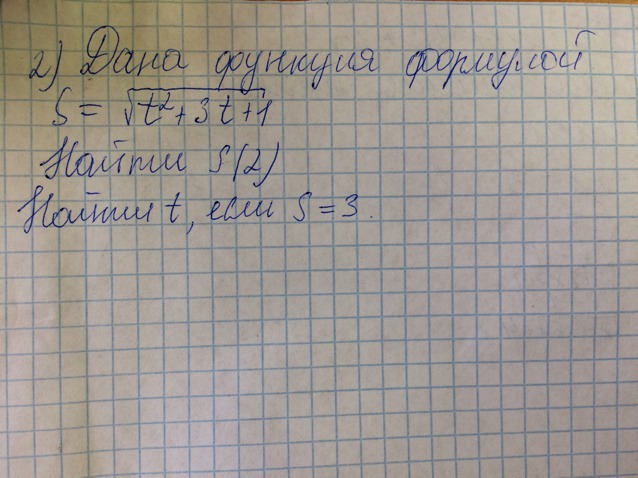 2) Дана функция формулой
S = √t²+3t+1
Найти S(2)
Найти t, если S = 3.